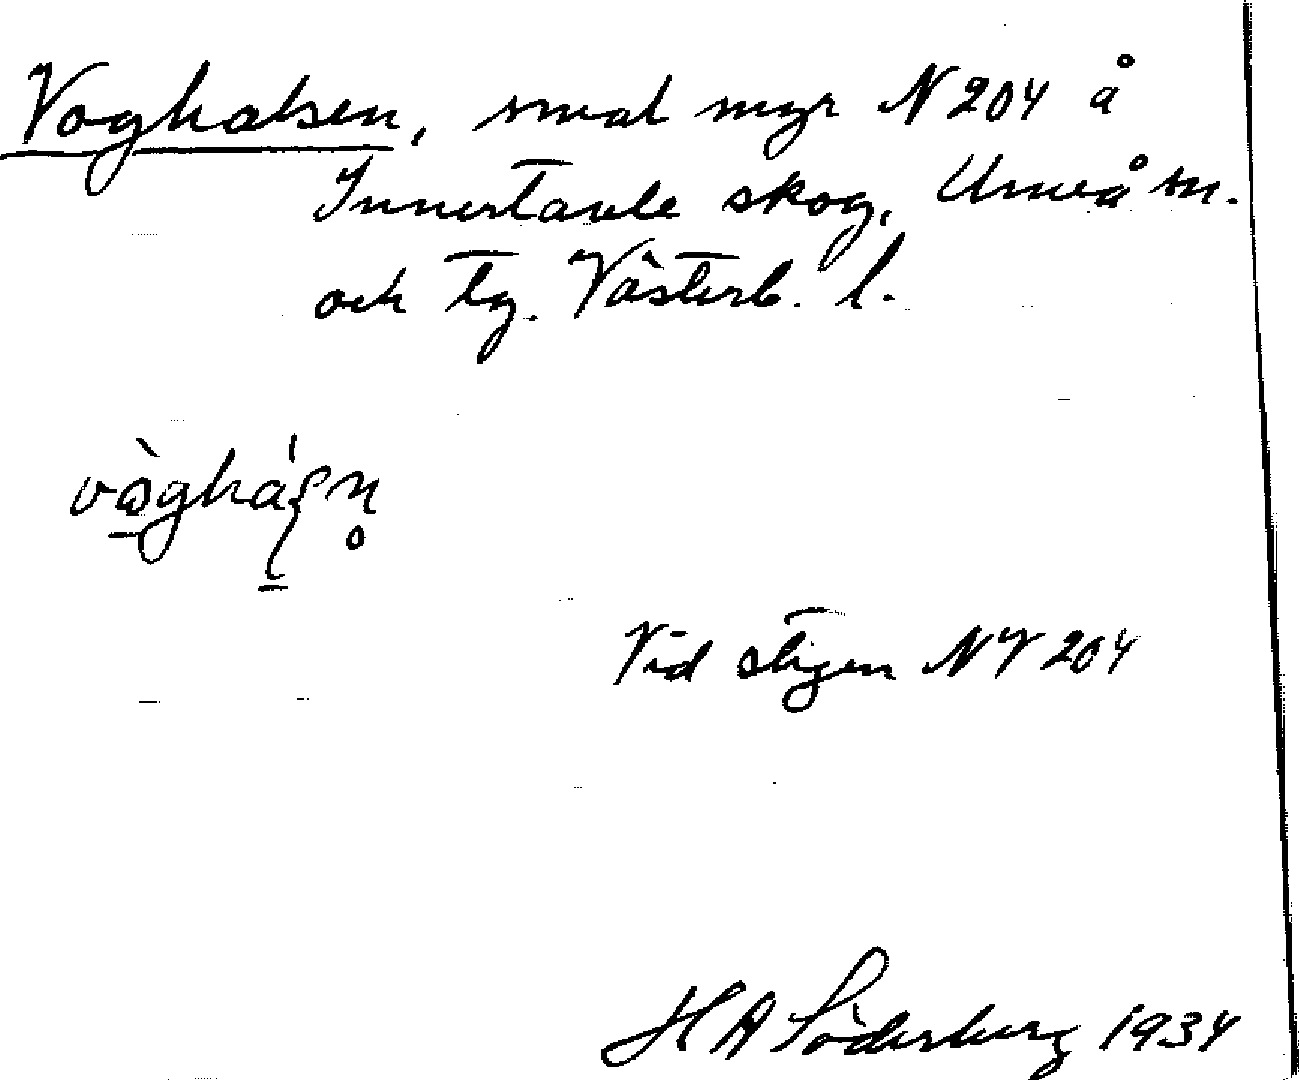 Voghalsen, smal myr N 204 å
Innertavle skog, Umeå sn.
och tg. Västerb. l.
Vid stigen NV 204
H A Söderberg 1934